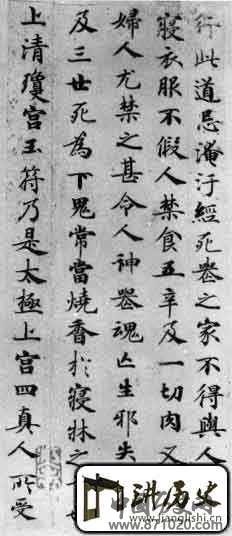 行此道忌淹汙經死喪之家不得與人
寢衣服不假人禁食五辛及一切肉又
婦人尤禁之甚令人神喪魂亡生邪失
及三世死為下鬼常當燒香於寢牀之
上清瓊宮玉符乃是太極上宮四真人所受
讲历史
www.jianglishi.cn
www.871020.com